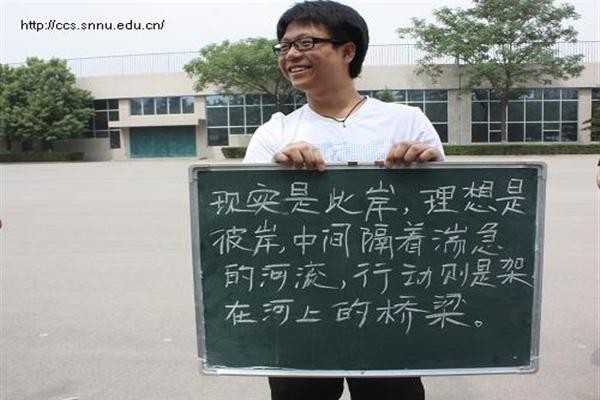 http://ccs.snnu.edu.cn/
现实是此岸，理想是
彼岸，中间隔着湍急
的河流，行动则是架
在河上的桥梁。